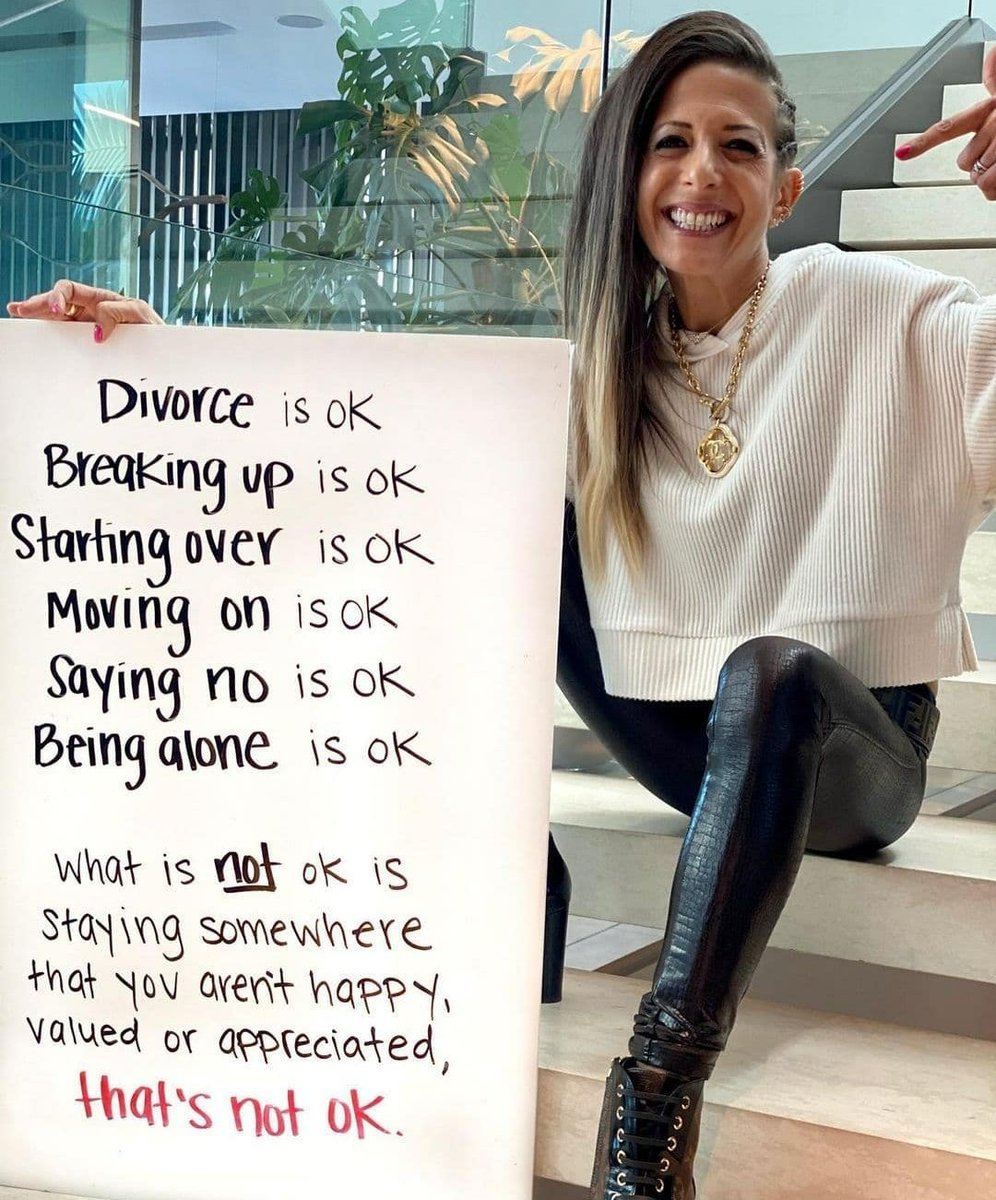 Divorce is ok
Breaking up is ok
Starting over is ok
Moving on is ok
Saying no is ok
Being alone is ok
What is not ok is
staying somewhere
that you aren't happy,
valued or appreciated,
that's not ok.